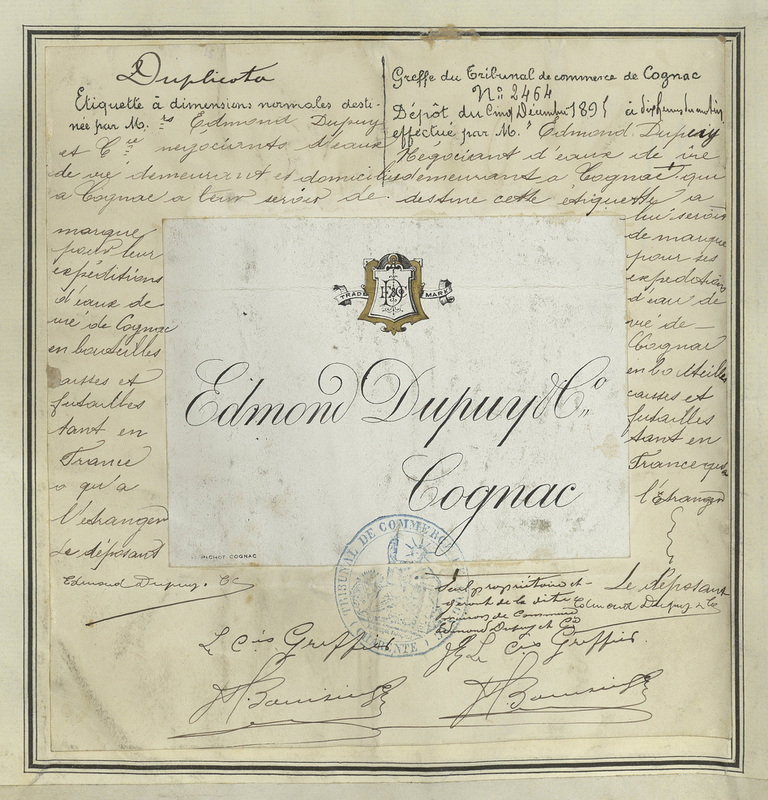 Duplicata
Etiquette à dimensions normales desti-
née par M.rs Edmond Dupuy
et Cie négociants d'eaux
de vie demeurant et domiciliés
à Cognac à leur servir de
marque
pour leur
expéditions
d'eaux de
vie de Cognac
en bouteilles
caisses et
futailles
tant en
France
qu'a
l'étranger
Le déposant
Edmond Dupuy. Co
Le cis Greffier
Greffe du Tribunal de commerce de Cognac
No: 2464
Dépôt du Cinq Décembre 1895 à dix heures du matin
effectué par M.r Edmond Dupuy
Négociant d'eaux de vie
demeurant a Cognac qui
destine cette étiquette a
lui servir
de marque
pour ses
expeditions
d'eau de
vie de
Cognac
en bouteilles
caisses et
futailles
tant en
France qu'a
l'Etranger
Le déposant
Edmond Dupuy & Co
Seul propriétaire et
gérant de la dite
maison de Commerce
Edmond Dupuy et Cie
Le cis Greffier
TRADE MARK
Edmond Dupuy & Co.
Cognac
PICHOT-COGNAC
TRIBUNAL DE COMMERCE